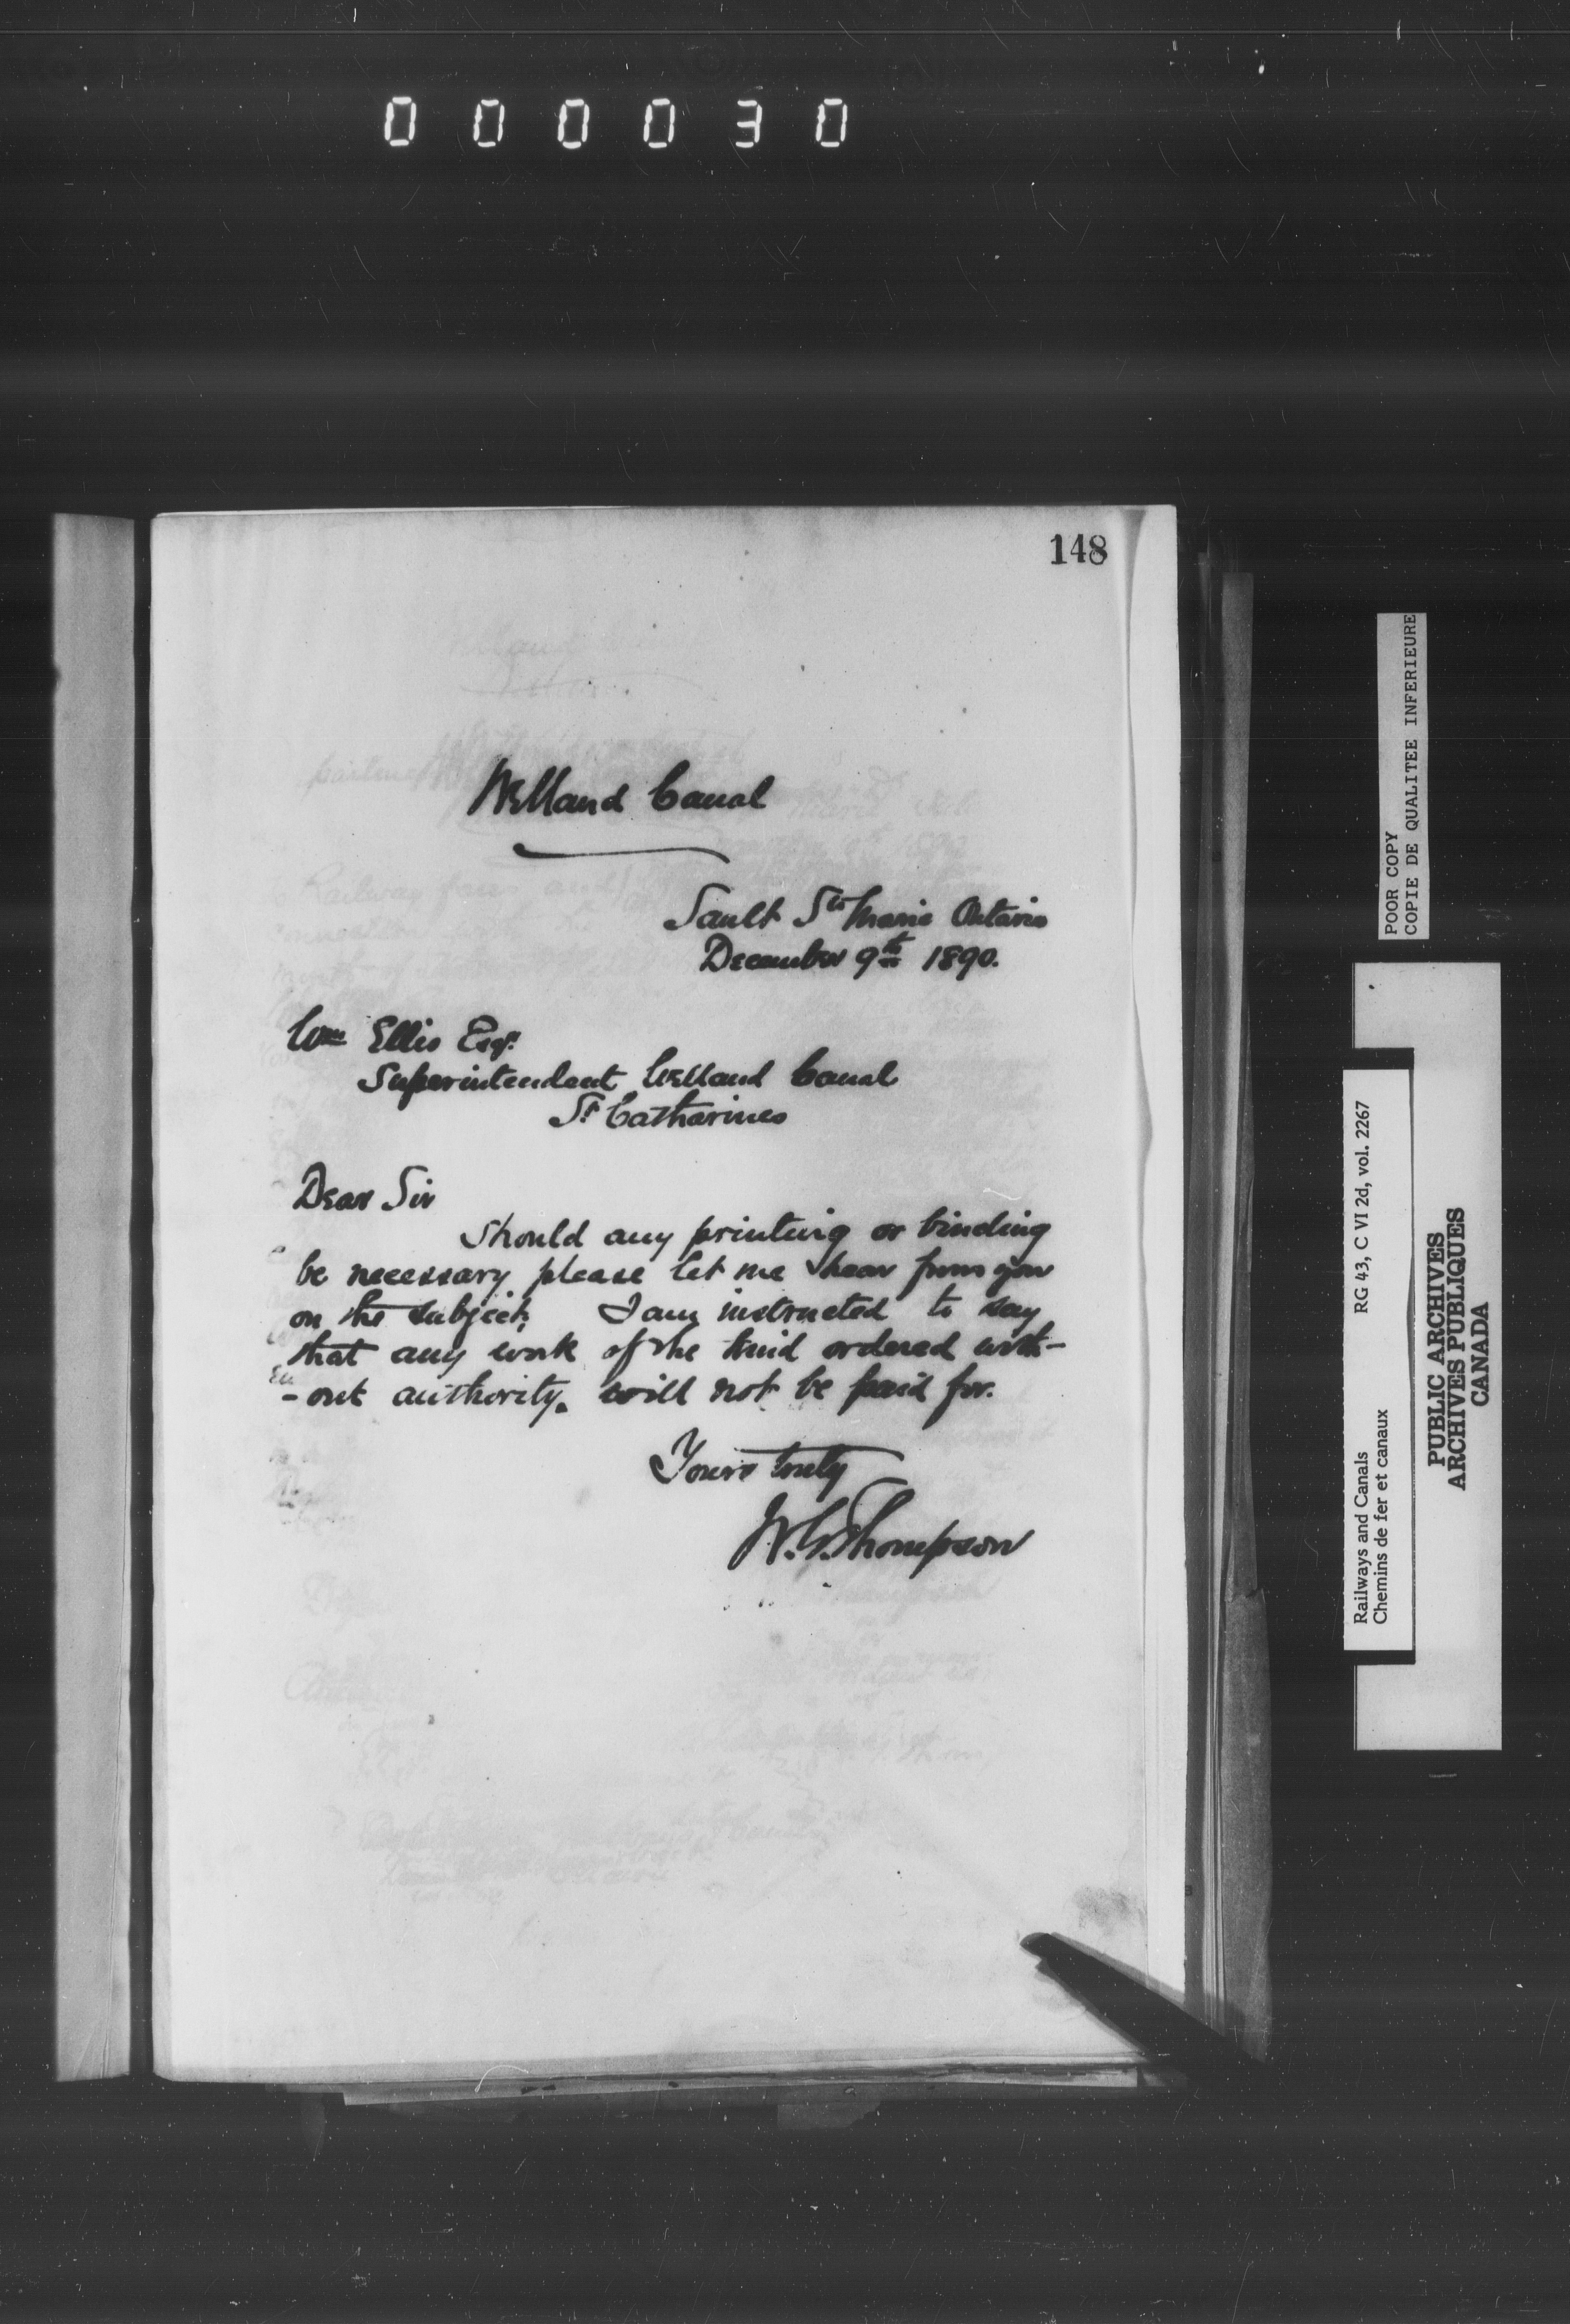 000030
148
Welland Canal
Sault Ste Marie Ontario
December 9th 1890.
Wm Ellis Esqr.
Superintendent Welland Canal
St Catharines
Dear Sir
Should any printing or binding
be necessary please let me hear from you
on the subject. I am instructed to say
that any work of the kind ordered with-
-out authority. will not be paid for.
Yours truly
W.G.Thompson
POOR COPY
COPIE DE QUALITEE INFERIEURE
Railways and Canals RG 43, C VI 2d, vol. 2267
Chemins de fer et canaux
PUBLIC ARCHIVES
ARCHIVES PUBLIQUES
CANADA